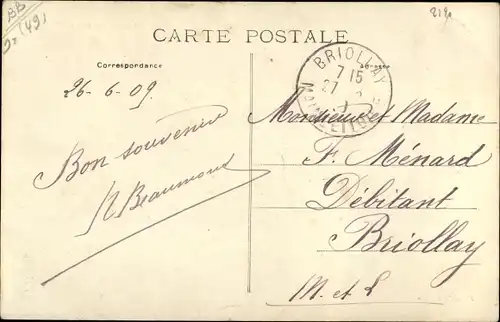 BB
(49)
CARTE POSTALE
Correspondance
Adresse
BRIOLLAY
7 15
27
MAINE-ET-LOIRE
26-6-09.
Bon souvenir
Beaumond
Monsieur et Madame
F. Ménard
Débitant
Briollay
M. et L